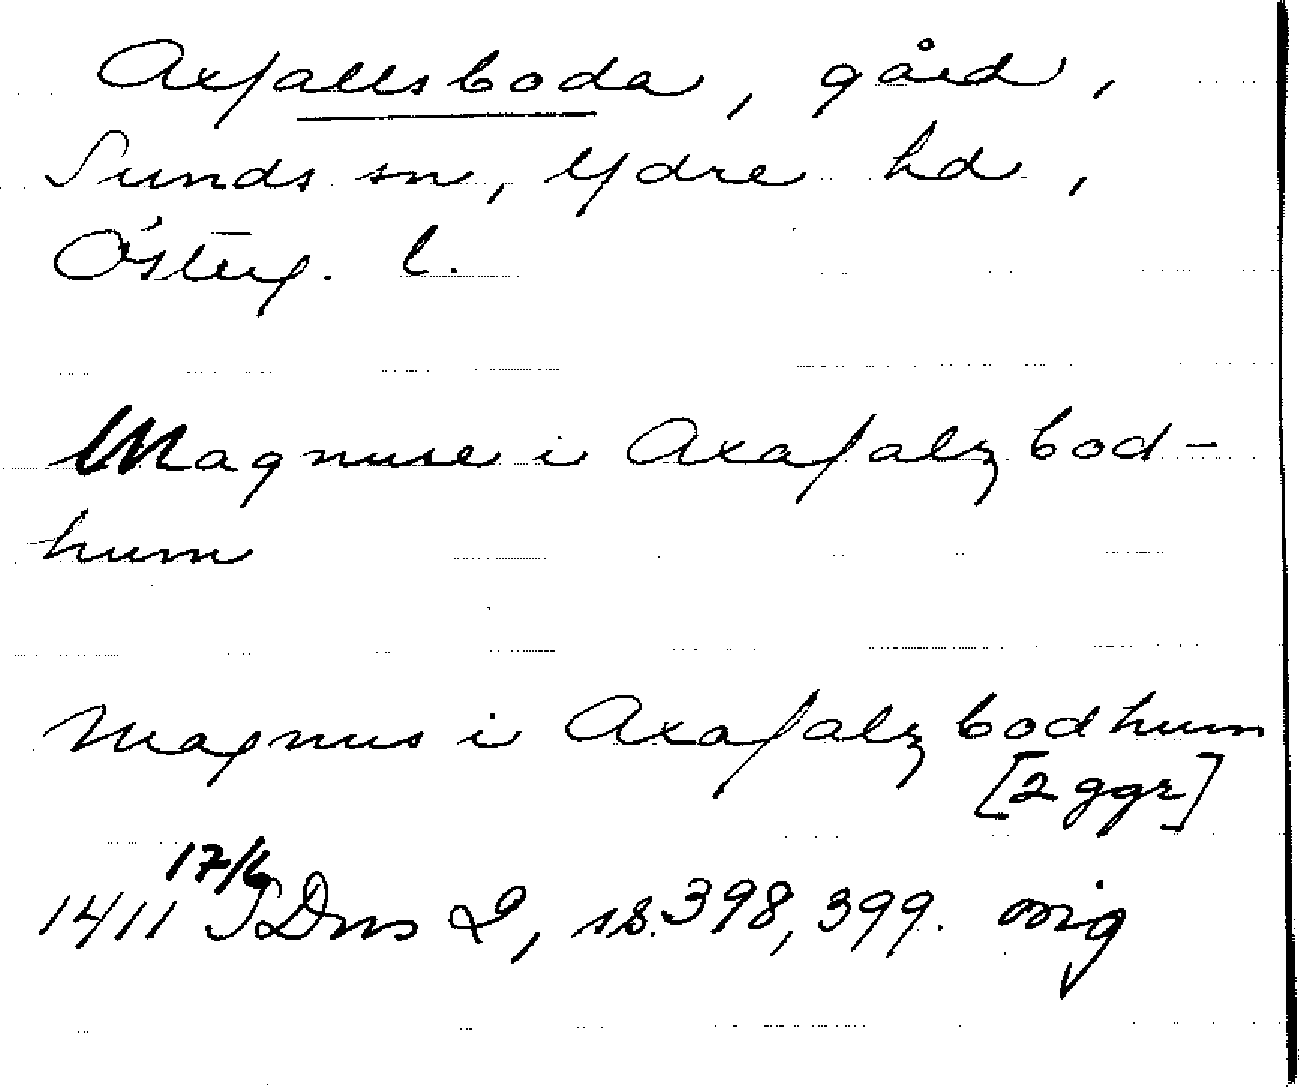 Axfallsboda, gård,
Sunds sn, Ydre hd,
Österg. l.
Magnuse i Axafalz bod-
hum
Magnus i Axafalz bodhum
[2 ggr]
17/6
1411 SDns 2, ss. 398, 399. orig